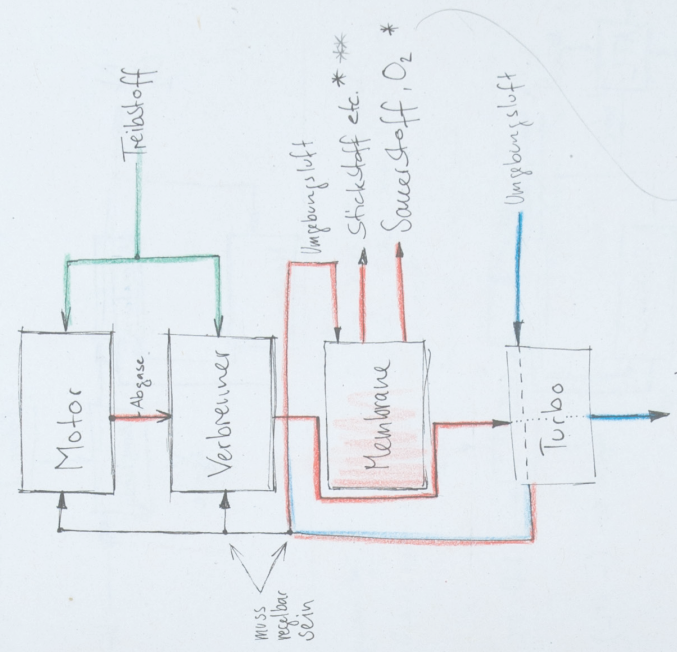 Treibstoff
Umgebungsluft
Stickstoff etc. * **
Sauerstoff, O₂ *
Umgebungsluft
Motor
Abgase
Verbrenner
Membrane
Turbo
muss
regelbar
sein